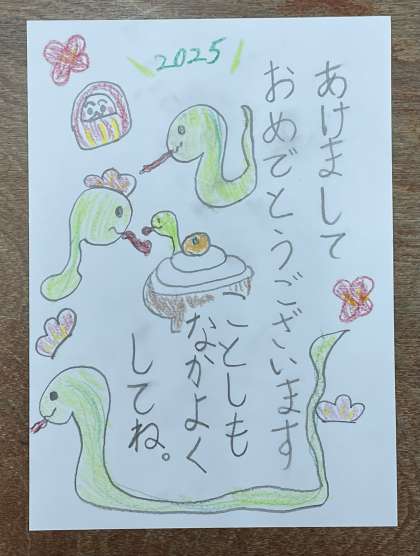 2025
あけまして
おめでとうございます
ことしも
なかよく
してね。